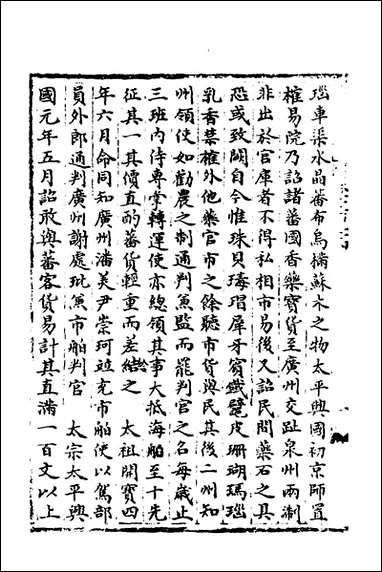 瑙車渠水晶蕃布烏樠蘇木之物太平興國初京師置
榷易院乃詔諸蕃國香藥寶貨至廣州交趾泉州兩浙
非出於官庫者不得私相市易後又詔民間藥石之具
恐或致闕自今惟珠貝瑇瑁犀牙賓鐵鼊皮珊瑚瑪瑙
乳香禁榷外他藥官市之餘聽市貨與民其後二州知
州領使如勸農之制通判兼監而罷判官之名每歲止
三班內侍專掌轉運使亦總領其事大抵海舶至十先
征其一其價直酌蕃貨輕重而差給之　太祖開寶四
年六月命同知廣州潘美尹崇珂竝充市舶使以駕部
員外郎通判廣州謝處玭兼市舶判官　太宗太平興
國元年五月詔敢與蕃客貨易計其直滿一百文以上